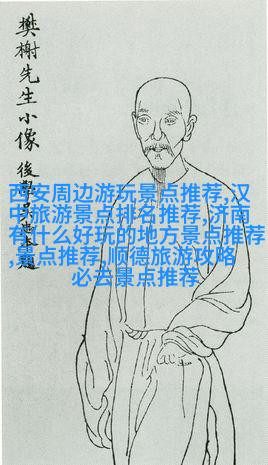 樊榭先生小像
後學題
西安周边游玩景点推荐,汉
中旅游景点排名推荐,济南
有什么好玩的地方景点推荐
,景点推荐,顺德旅游攻略
必去景点推荐